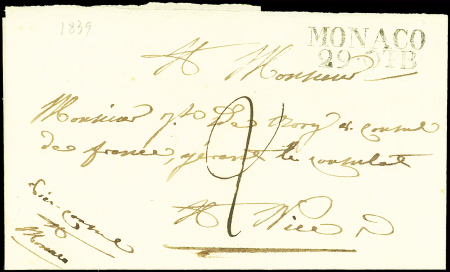 1839
MONACO
29 OTB
A Monsieur
Monsieur De consul
de france, gérant le consulat
2
A Nice
Vice-consul
Monaco